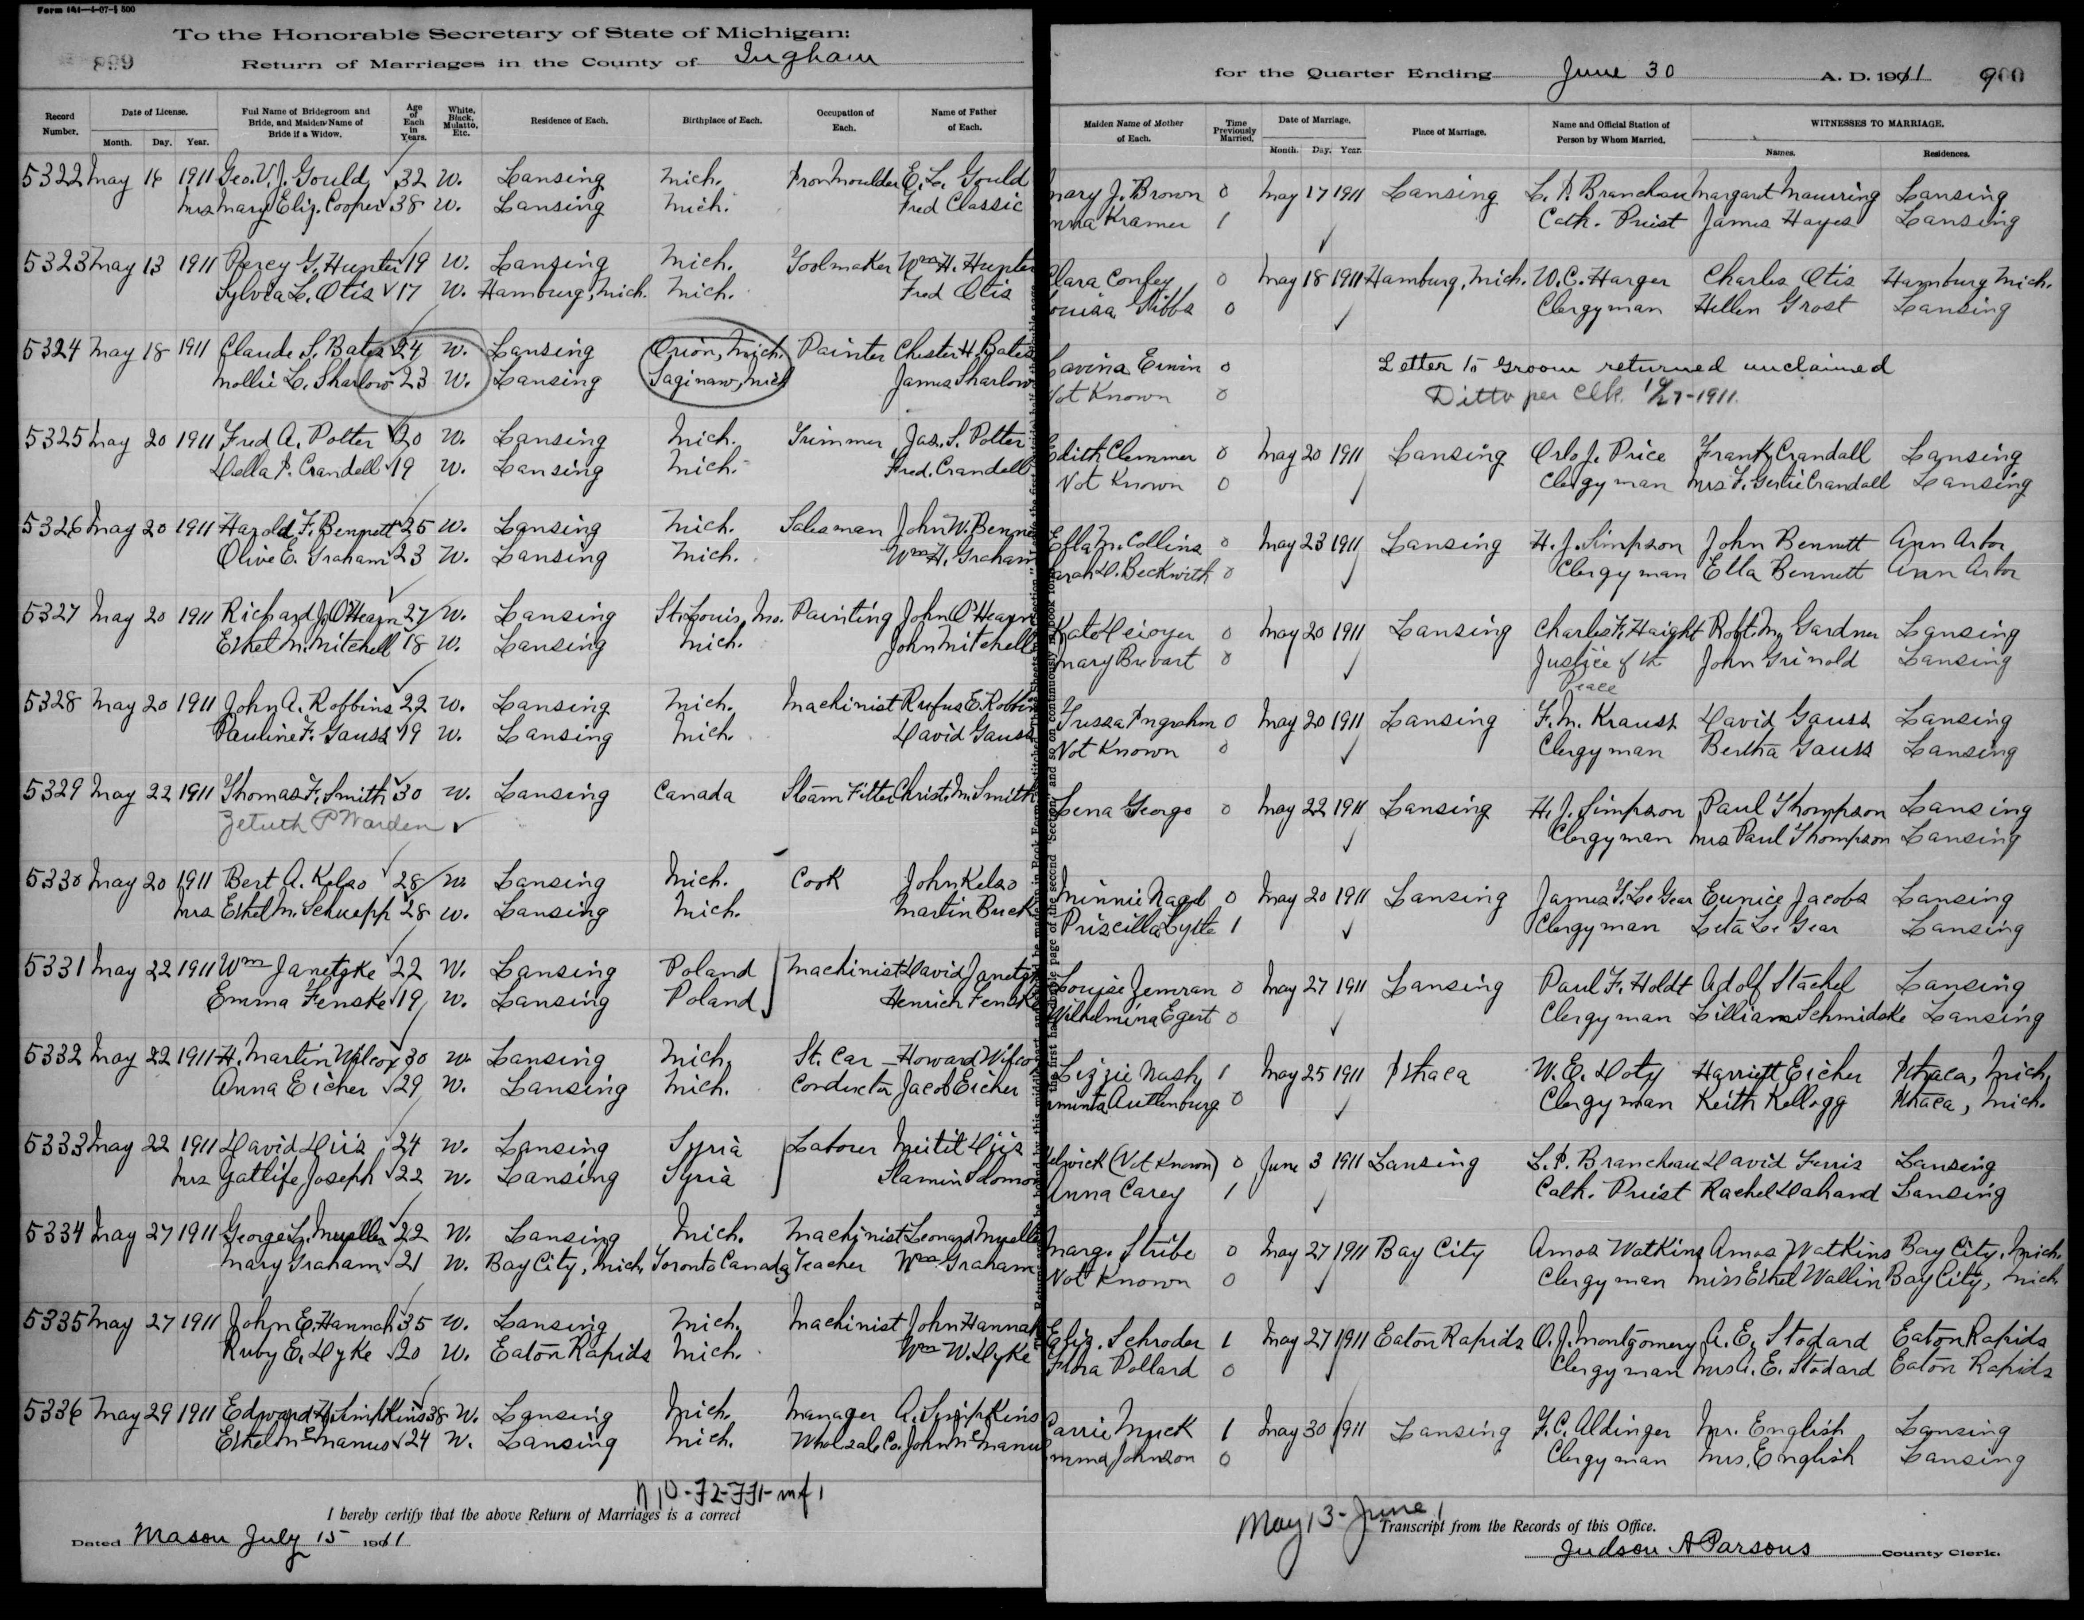 Form 141—4-07-1 500
To the Honorable Secretary of State of Michigan:
899
Return of Marriages in the County of Ingham
Record Number. Date of License. Month. Day. Year. Full Name of Bridegroom and Bride, and Maiden Name of Bride if a Widow. Age of Each in Years. White, Black, Mulatto, Etc. Residence of Each. Birthplace of Each. Occupation of Each. Name of Father of Each.
5322 May 16 1911 Geo. V. J. Gould 32 W. Lansing Mich. Iron Moulder E. L. Gould
Mrs Mary Eliz. Cooper 38 W. Lansing Mich. Fred Classic
5323 May 13 1911 Percy G. Hunter 19 W. Lansing Mich. Toolmaker Wm H. Hunter
Sylvia L. Otis 17 W. Hamburg, Mich. Mich. Fred Otis
5324 May 18 1911 Claude S. Bates 24 W. Lansing Orion, Mich. Painter Chester H. Bates
Mollie L. Sharlow 23 W. Lansing Saginaw, Mich James Sharlow
5325 May 20 1911 Fred A. Potter 20 W. Lansing Mich. Trimmer Jas. S. Potter
Della F. Crandell 19 W. Lansing Mich. Fred. Crandell
5326 May 20 1911 Harold F. Bennett 25 W. Lansing Mich. Salesman John W. Benne
Olive E. Graham 23 W. Lansing Mich. Wm H. Graham
5327 May 20 1911 Richard J. O'Hearn 27 W. Lansing St. Louis, Mo. Painting John O'Hearn
Ethel M. Mitchell 18 W. Lansing Mich. John Mitchell
5328 May 20 1911 John A. Robbins 22 W. Lansing Mich. Machinist Rufus E. Robbin
Pauline F. Gauss 19 W. Lansing Mich. David Gauss
5329 May 22 1911 Thomas F. Smith 30 W. Lansing Canada Steam Fitter Christ. M. Smith
P Warden
5330 May 20 1911 Bert A. Kelso 28 W Lansing Mich. Cook John Kelso
Mrs Ethel M. Schnepp 28 W. Lansing Mich. Martin Buck
5331 May 22 1911 Wm Janetzke 22 W. Lansing Poland Machinist David Janetzk
Emma Fenske 19 W. Lansing Poland Henrich Fensk
5332 May 22 1911 H. Martin Wilcox 30 W Lansing Mich. St. Car Howard Wilcox
Anna Eicher 29 W. Lansing Mich. Conductor Jacob Eicher
5333 May 22 1911 David 24 W. Lansing Syria Laborer
Mrs Joseph 22 W. Lansing Syria Slamin Solomon
5334 May 27 1911 George L. Mueller 22 W. Lansing Mich. Machinist Leonard Muelle
Mary Graham 21 W. Bay City, Mich. Toronto Canada Teacher Wm Graham
5335 May 27 1911 John E. Hannah 35 W. Lansing Mich. Machinist John Hannah
Ruby E. Dyke 20 W. Eaton Rapids Mich. Wm W. Dyke
5336 May 29 1911 Edward H. Simpkins 38 W. Lansing Mich. Manager A. Simpkins
Ethel McManus 24 W. Lansing Mich. Wholesale Co. John McManu
I hereby certify that the above Return of Marriages is a correct
Dated Mason July 15 1911
for the Quarter Ending June 30 A. D. 1911 900
Maiden Name of Mother of Each. Time Previously Married. Date of Marriage. Month. Day. Year. Place of Marriage. Name and Official Station of Person by Whom Married. WITNESSES TO MARRIAGE. Names. Residences.
Mary J. Brown 0 May 17 1911 Lansing L. P. Brancheau Margaret Lansing
mma Kramer 1 Cath. Priest James Hayes Lansing
Clara Confey 0 May 18 1911 Hamburg, Mich. W. C. Harger Charles Otis Hamburg Mich.
ouisa Stibbs 0 Clergyman Hellen Grost Lansing
Lavina Erwin 0 Letter to Groom returned unclaimed
Not Known 0 Ditto per Clk. 10/27-1911.
Edith Clemmer 0 May 20 1911 Lansing Orlo J. Price Frank Crandall Lansing
Not Known 0 Clergyman Mrs F. Gertie Crandall Lansing
Ella M. Collins 0 May 23 1911 Lansing H. J. Simpson John Bennett Ann Arbor
Sarah D. Beckwith 0 Clergyman Ella Bennett Ann Arbor
Kate 0 May 20 1911 Lansing Charles F. Haight Robt. M. Gardner Lansing
Mary Brevart 0 Justice of the John Grinold Lansing
Peace
Tressa Ingrahm 0 May 20 1911 Lansing F. M. Krauss David Gauss Lansing
Not Known 0 Clergyman Bertha Gauss Lansing
Lena George 0 May 22 1911 Lansing H. J. Simpson Paul Thompson Lansing
Clergyman Mrs Paul Thompson Lansing
Minnie Nagel 0 May 20 1911 Lansing James T. Le Gear Eunice Jacobs Lansing
Priscilla Lytle 1 Clergyman Leta Le Gear Lansing
Louise Zemran 0 May 27 1911 Lansing Paul F. Holdt Adolf Stachel Lansing
Wilhelmina Egert 0 Clergyman Lillian Schmidske Lansing
Lizzie Nash 1 May 25 1911 Ithaca W. E. Doty Harriett Eicher Ithaca, Mich.
Autenburg 0 Clergyman Keith Kellogg Ithaca, Mich.
(Not Known) 0 June 3 1911 Lansing L. P. Brancheau David Ferris Lansing
Anna Carey 1 Cath. Priest Rachel Dahand Lansing
Marg. Stribe 0 May 27 1911 Bay City Amos Watkins Amos Watkins Bay City, Mich.
Not Known 0 Clergyman Miss Ethel Wallin Bay City, Mich
Eliz. Schroder 1 May 27 1911 Eaton Rapids O. J. Montgomery A. E. Stodard Eaton Rapids
Flora Pollard 0 Clergyman Mrs A. E. Stodard Eaton Rapids
Carrie Muck 1 May 30 1911 Lansing F. C. Aldinger Mr. English Lansing
mma Johnson 0 Clergyman Mrs. English Lansing
May 13 - June 1
Transcript from the Records of this Office.
Judson A Parsons County Clerk.